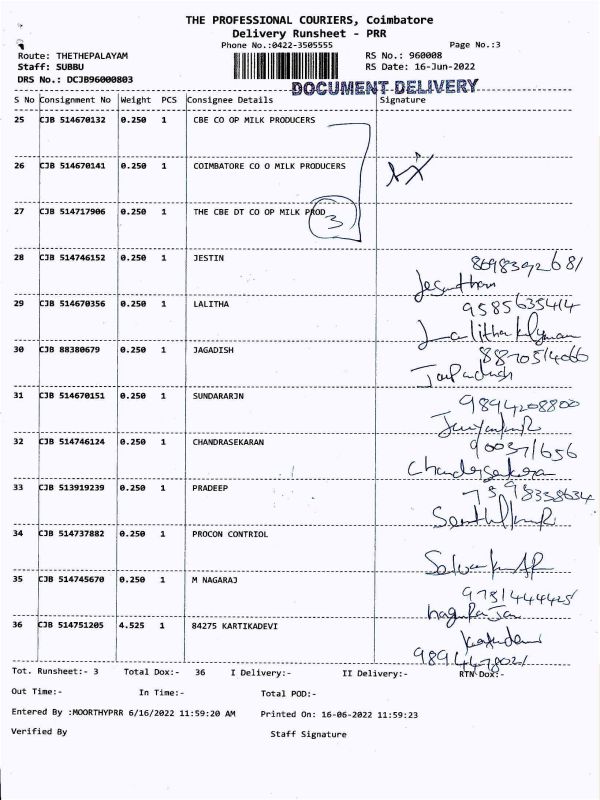 THE PROFESSIONAL COURIERS, Coimbatore
Delivery Runsheet - PRR
Phone No.:0422-3505555 Page No.:3
Route: THETHEPALAYAM RS No.: 960008
Staff: SUBBU RS Date: 16-Jun-2022
DRS No.: DCJB96000803
DOCUMENT DELIVERY
S No Consignment No Weight PCS Consignee Details Signature
25 CJB 514670132 0.250 1 CBE CO OP MILK PRODUCERS
26 CJB 514670141 0.250 1 COIMBATORE CO O MILK PRODUCERS
27 CJB 514717906 0.250 1 THE CBE DT CO OP MILK PROD
3
28 CJB 514746152 0.250 1 JESTIN
29 CJB 514670356 0.250 1 LALITHA 9585635414
30 CJB 88380679 0.250 1 JAGADISH
31 CJB 514670151 0.250 1 SUNDARARJN 9894208800
32 CJB 514746124 0.250 1 CHANDRASEKARAN
Chandrasekaran
33 CJB 513919239 0.250 1 PRADEEP
34 CJB 514737882 0.250 1 PROCON CONTRIOL
35 CJB 514745670 0.250 1 M NAGARAJ
36 CJB 514751205 4.525 1 84275 KARTIKADEVI
Tot. Runsheet:- 3 Total Dox:- 36 I Delivery:- II Delivery:- RTN Dox:-
Out Time:- In Time:- Total POD:-
Entered By :MOORTHYPRR 6/16/2022 11:59:20 AM Printed On: 16-06-2022 11:59:23
Verified By Staff Signature